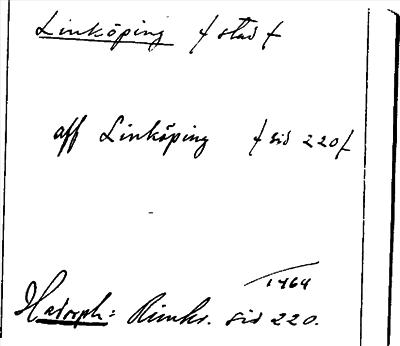 Linköping / stad /
aff Linköping / sid 220 /
1464
Hadorph: Rimkr. sid 220.